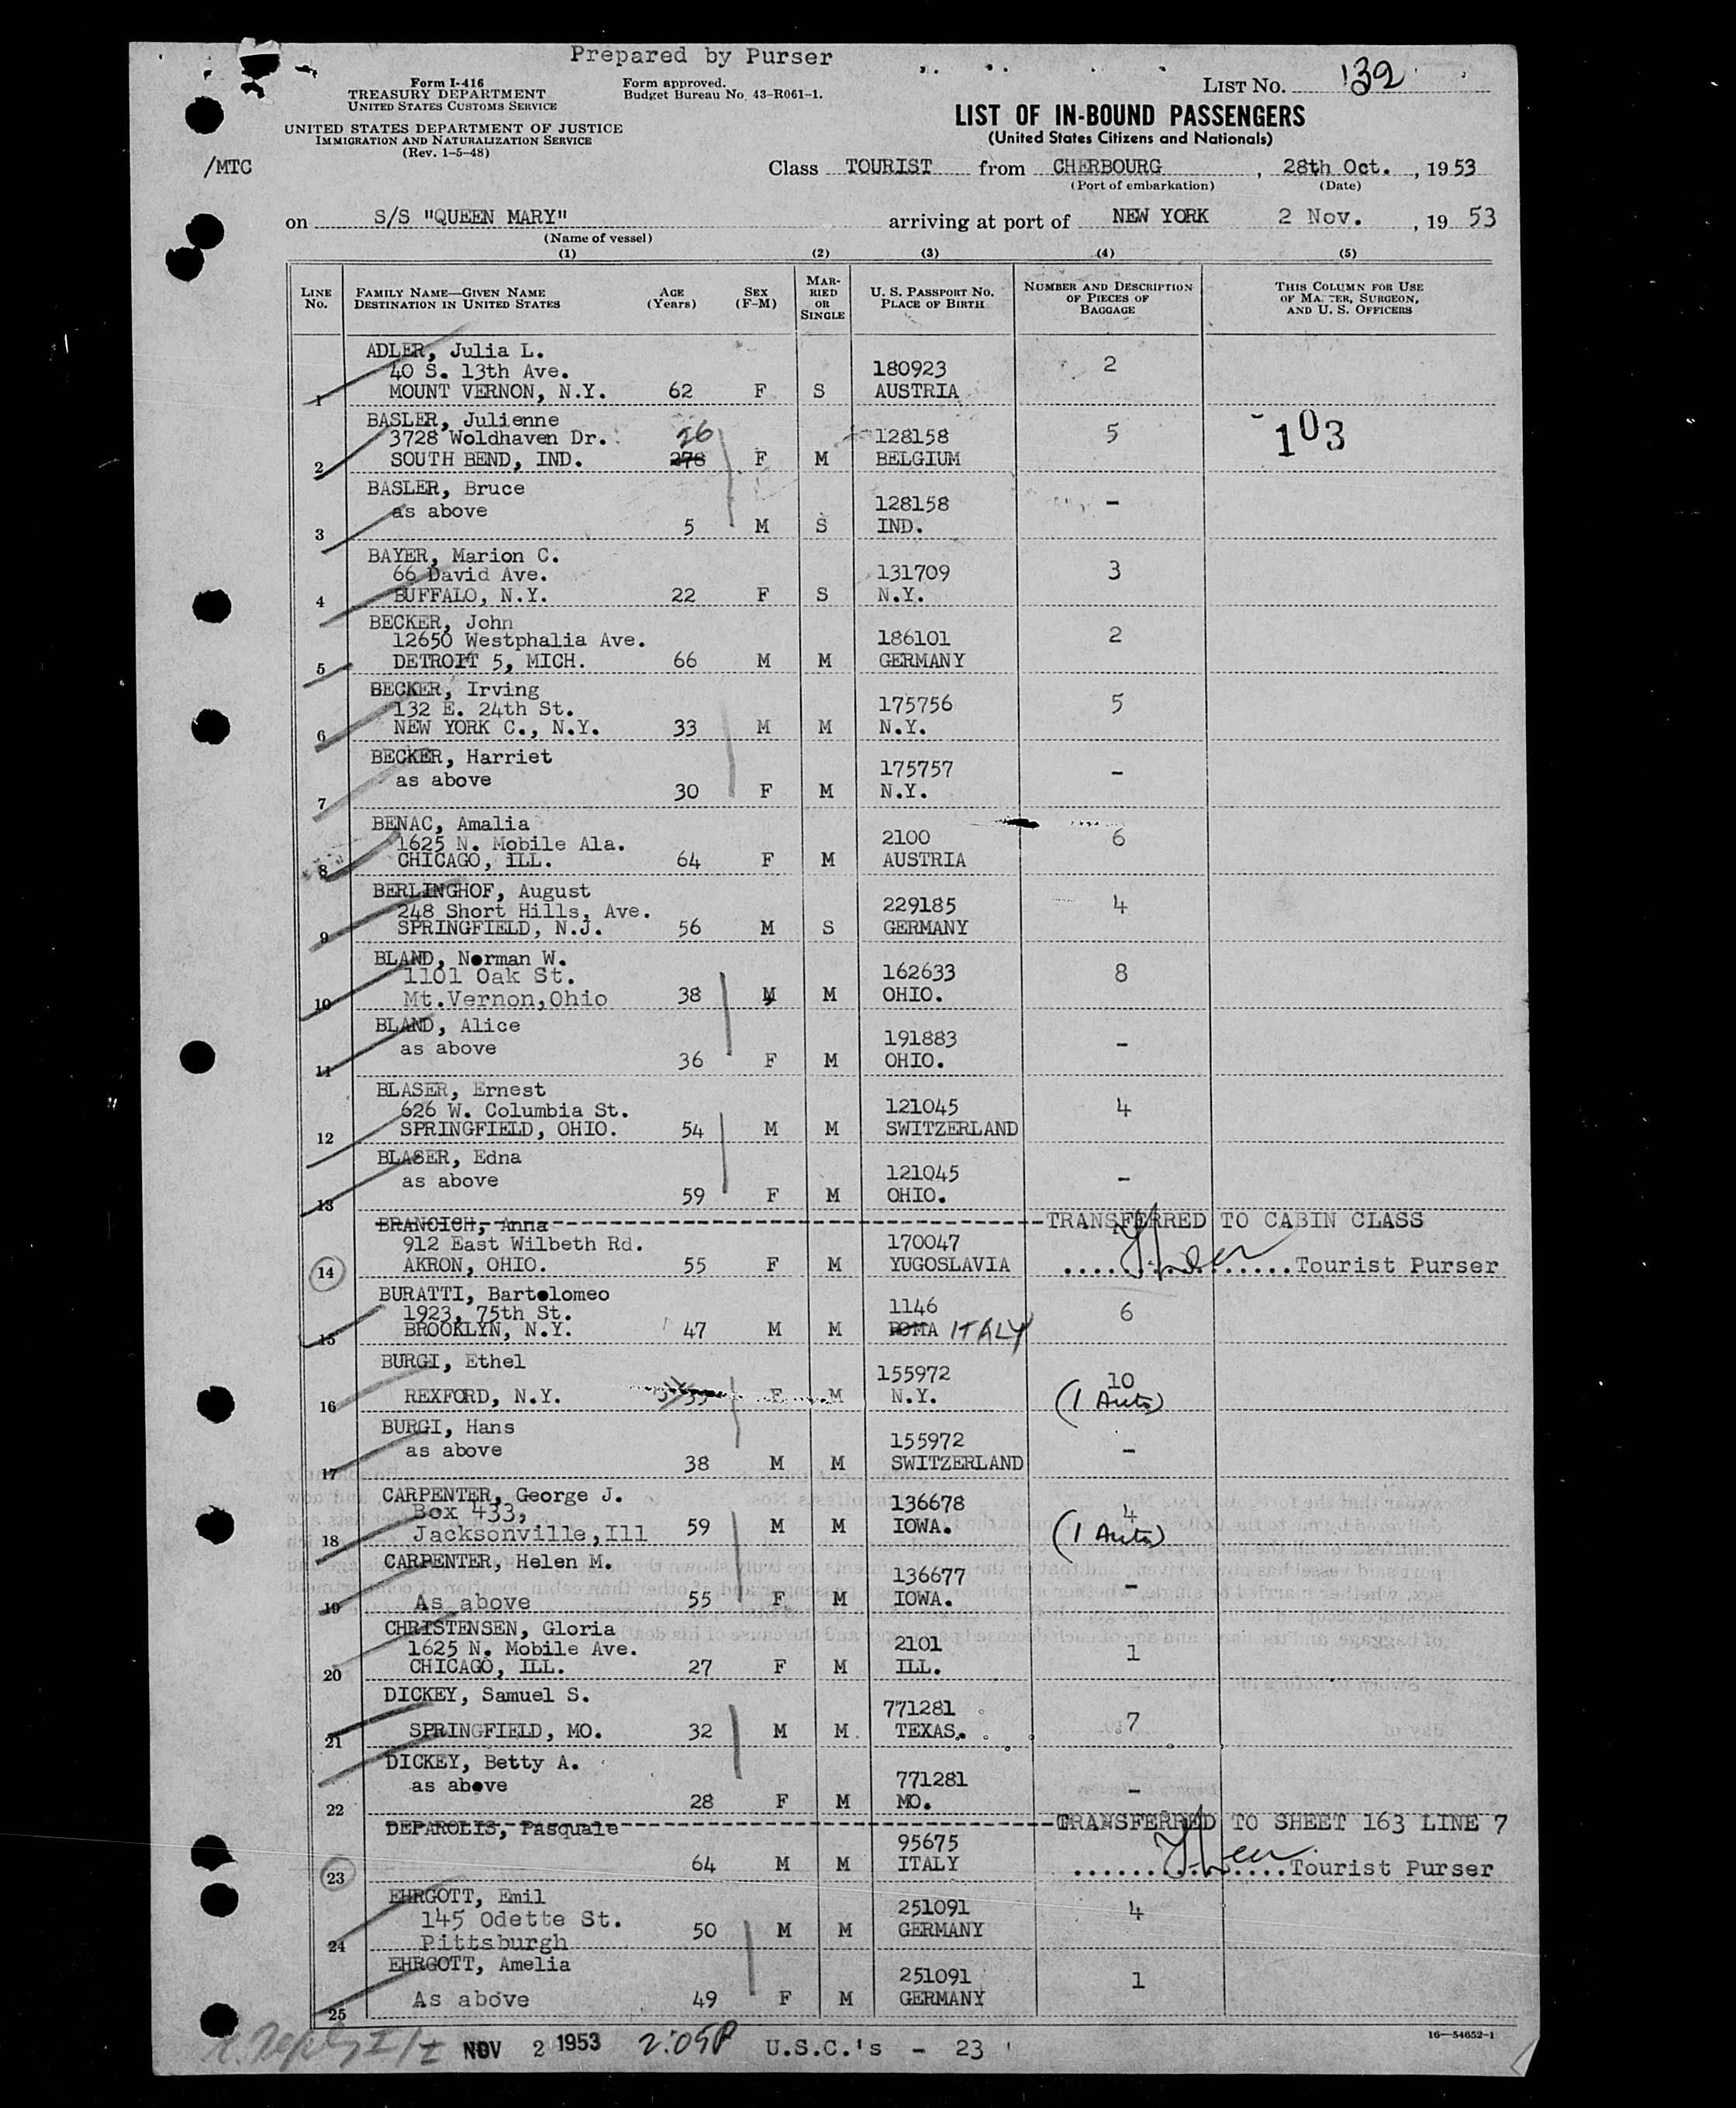 Prepared by Purser
Form I-416
TREASURY DEPARTMENT
UNITED STATES CUSTOMS SERVICE
UNITED STATES DEPARTMENT OF JUSTICE
IMMIGRATION AND NATURALIZATION SERVICE
(Rev. 1-5-48)
Form approved.
Budget Bureau No. 43-R061-1.
LIST NO. 132
LIST OF IN-BOUND PASSENGERS
(United States Citizens and Nationals)
/MTC
Class TOURIST from CHERBOURG, 28th Oct., 1953
(Port of embarkation) (Date)
on S/S "QUEEN MARY" arriving at port of NEW YORK 2 Nov., 1953
(Name of vessel)
(1) (2) (3) (4) (5)
LINE NO. FAMILY NAME—GIVEN NAME DESTINATION IN UNITED STATES AGE (Years) SEX (F-M) MARRIED OR SINGLE U. S. PASSPORT NO. PLACE OF BIRTH NUMBER AND DESCRIPTION OF PIECES OF BAGGAGE THIS COLUMN FOR USE OF MASTER, SURGEON, AND U. S. OFFICERS
ADLER, Julia L.
40 S. 13th Ave. 180923 2
1 MOUNT VERNON, N.Y. 62 F S AUSTRIA
BASLER, Julienne
3728 Woldhaven Dr. 26 128158 5 103
2 SOUTH BEND, IND. 278 F M BELGIUM
BASLER, Bruce
as above 128158 -
3 5 M S IND.
BAYER, Marion C.
66 David Ave. 131709 3
4 BUFFALO, N.Y. 22 F S N.Y.
BECKER, John
12650 Westphalia Ave. 186101 2
5 DETROIT 5, MICH. 66 M M GERMANY
BECKER, Irving
132 E. 24th St. 175756 5
6 NEW YORK C., N.Y. 33 M M N.Y.
BECKER, Harriet
as above 175757 -
7 30 F M N.Y.
BENAC, Amalia
1625 N. Mobile Ala. 2100 6
8 CHICAGO, ILL. 64 F M AUSTRIA
BERLINGHOF, August
248 Short Hills, Ave. 229185 4
9 SPRINGFIELD, N.J. 56 M S GERMANY
BLAND, Norman W.
1101 Oak St. 162633 8
10 Mt.Vernon,Ohio 38 M M OHIO.
BLAND, Alice
as above 191883 -
11 36 F M OHIO.
BLASER, Ernest
626 W. Columbia St. 121045 4
12 SPRINGFIELD, OHIO. 54 M M SWITZERLAND
BLASER, Edna
as above 121045 -
13 59 F M OHIO.
BRANCICH, Anna TRANSFERRED TO CABIN CLASS
912 East Wilbeth Rd. 170047
14 AKRON, OHIO. 55 F M YUGOSLAVIA Tourist Purser
BURATTI, Bartolomeo
1923, 75th St. 1146 6
15 BROOKLYN, N.Y. 47 M M ROMA ITALY
BURGI, Ethel
155972 10
16 REXFORD, N.Y. F M N.Y. (1 Auto)
BURGI, Hans
as above 155972 -
17 38 M M SWITZERLAND
CARPENTER, George J.
Box 433, 136678 4
18 Jacksonville,Ill 59 M M IOWA. (1 Auto)
CARPENTER, Helen M.
136677 -
19 As above 55 F M IOWA.
CHRISTENSEN, Gloria
1625 N. Mobile Ave. 2101 1
20 CHICAGO, ILL. 27 F M ILL.
DICKEY, Samuel S.
771281 7
21 SPRINGFIELD, MO. 32 M M TEXAS.
DICKEY, Betty A.
as above 771281 -
22 28 F M MO.
DEPAROLIS, Pasquale TRANSFERRED TO SHEET 163 LINE 7
95675
23 64 M M ITALY Tourist Purser
EHRGOTT, Emil
145 Odette St. 251091 4
24 Pittsburgh 50 M M GERMANY
EHRGOTT, Amelia
251091 1
25 As above 49 F M GERMANY
16—54652-1
NOV 2 1953 2:05P U.S.C.'s - 23